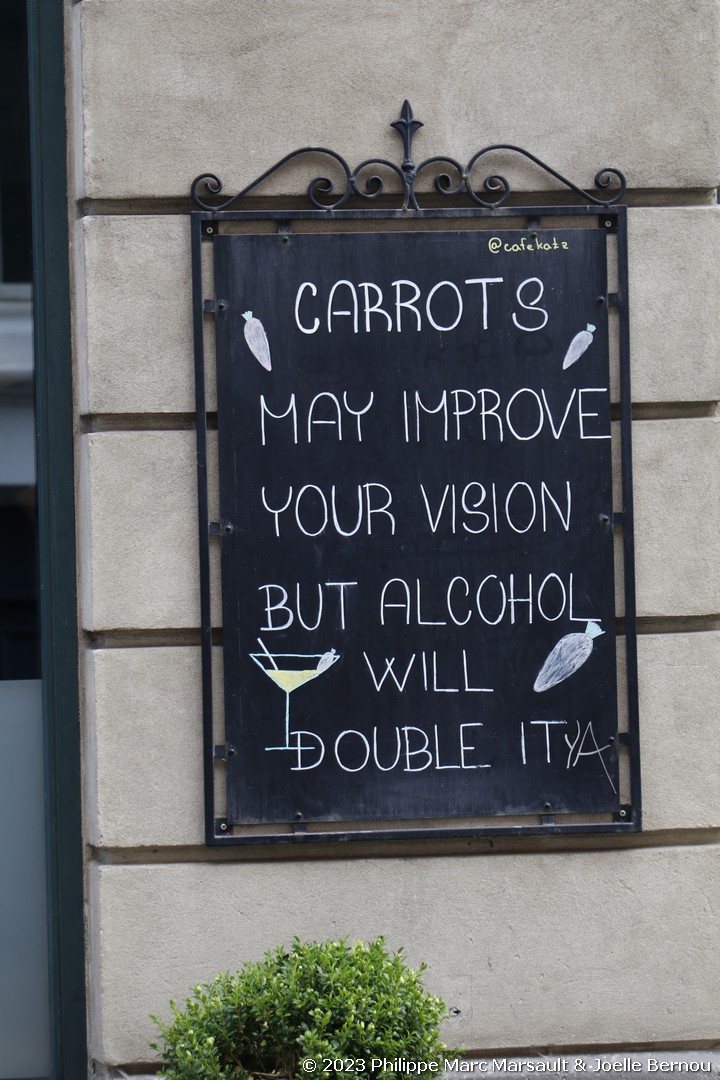 @cafekatz
CARROTS
MAY IMPROVE
YOUR VISION
BUT ALCOHOL
WILL
DOUBLE IT YA
© 2023 Philippe Marc Marsault & Joelle Bernou